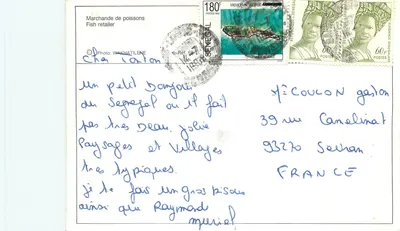 Marchande de poissons
Fish retailer
Photo:
180F
SENEGAL
60F
Cher tonton
un petit Bonjour
du Senegal ou il fait
pas tres Beau, jolie
Paysages et Villages
tres typiques.
je te fais un gros bisous
ainsi que Raymond
Muriel
Mr COULON gaston
39 rue Camelinat
93270 Sevran
FRANCE